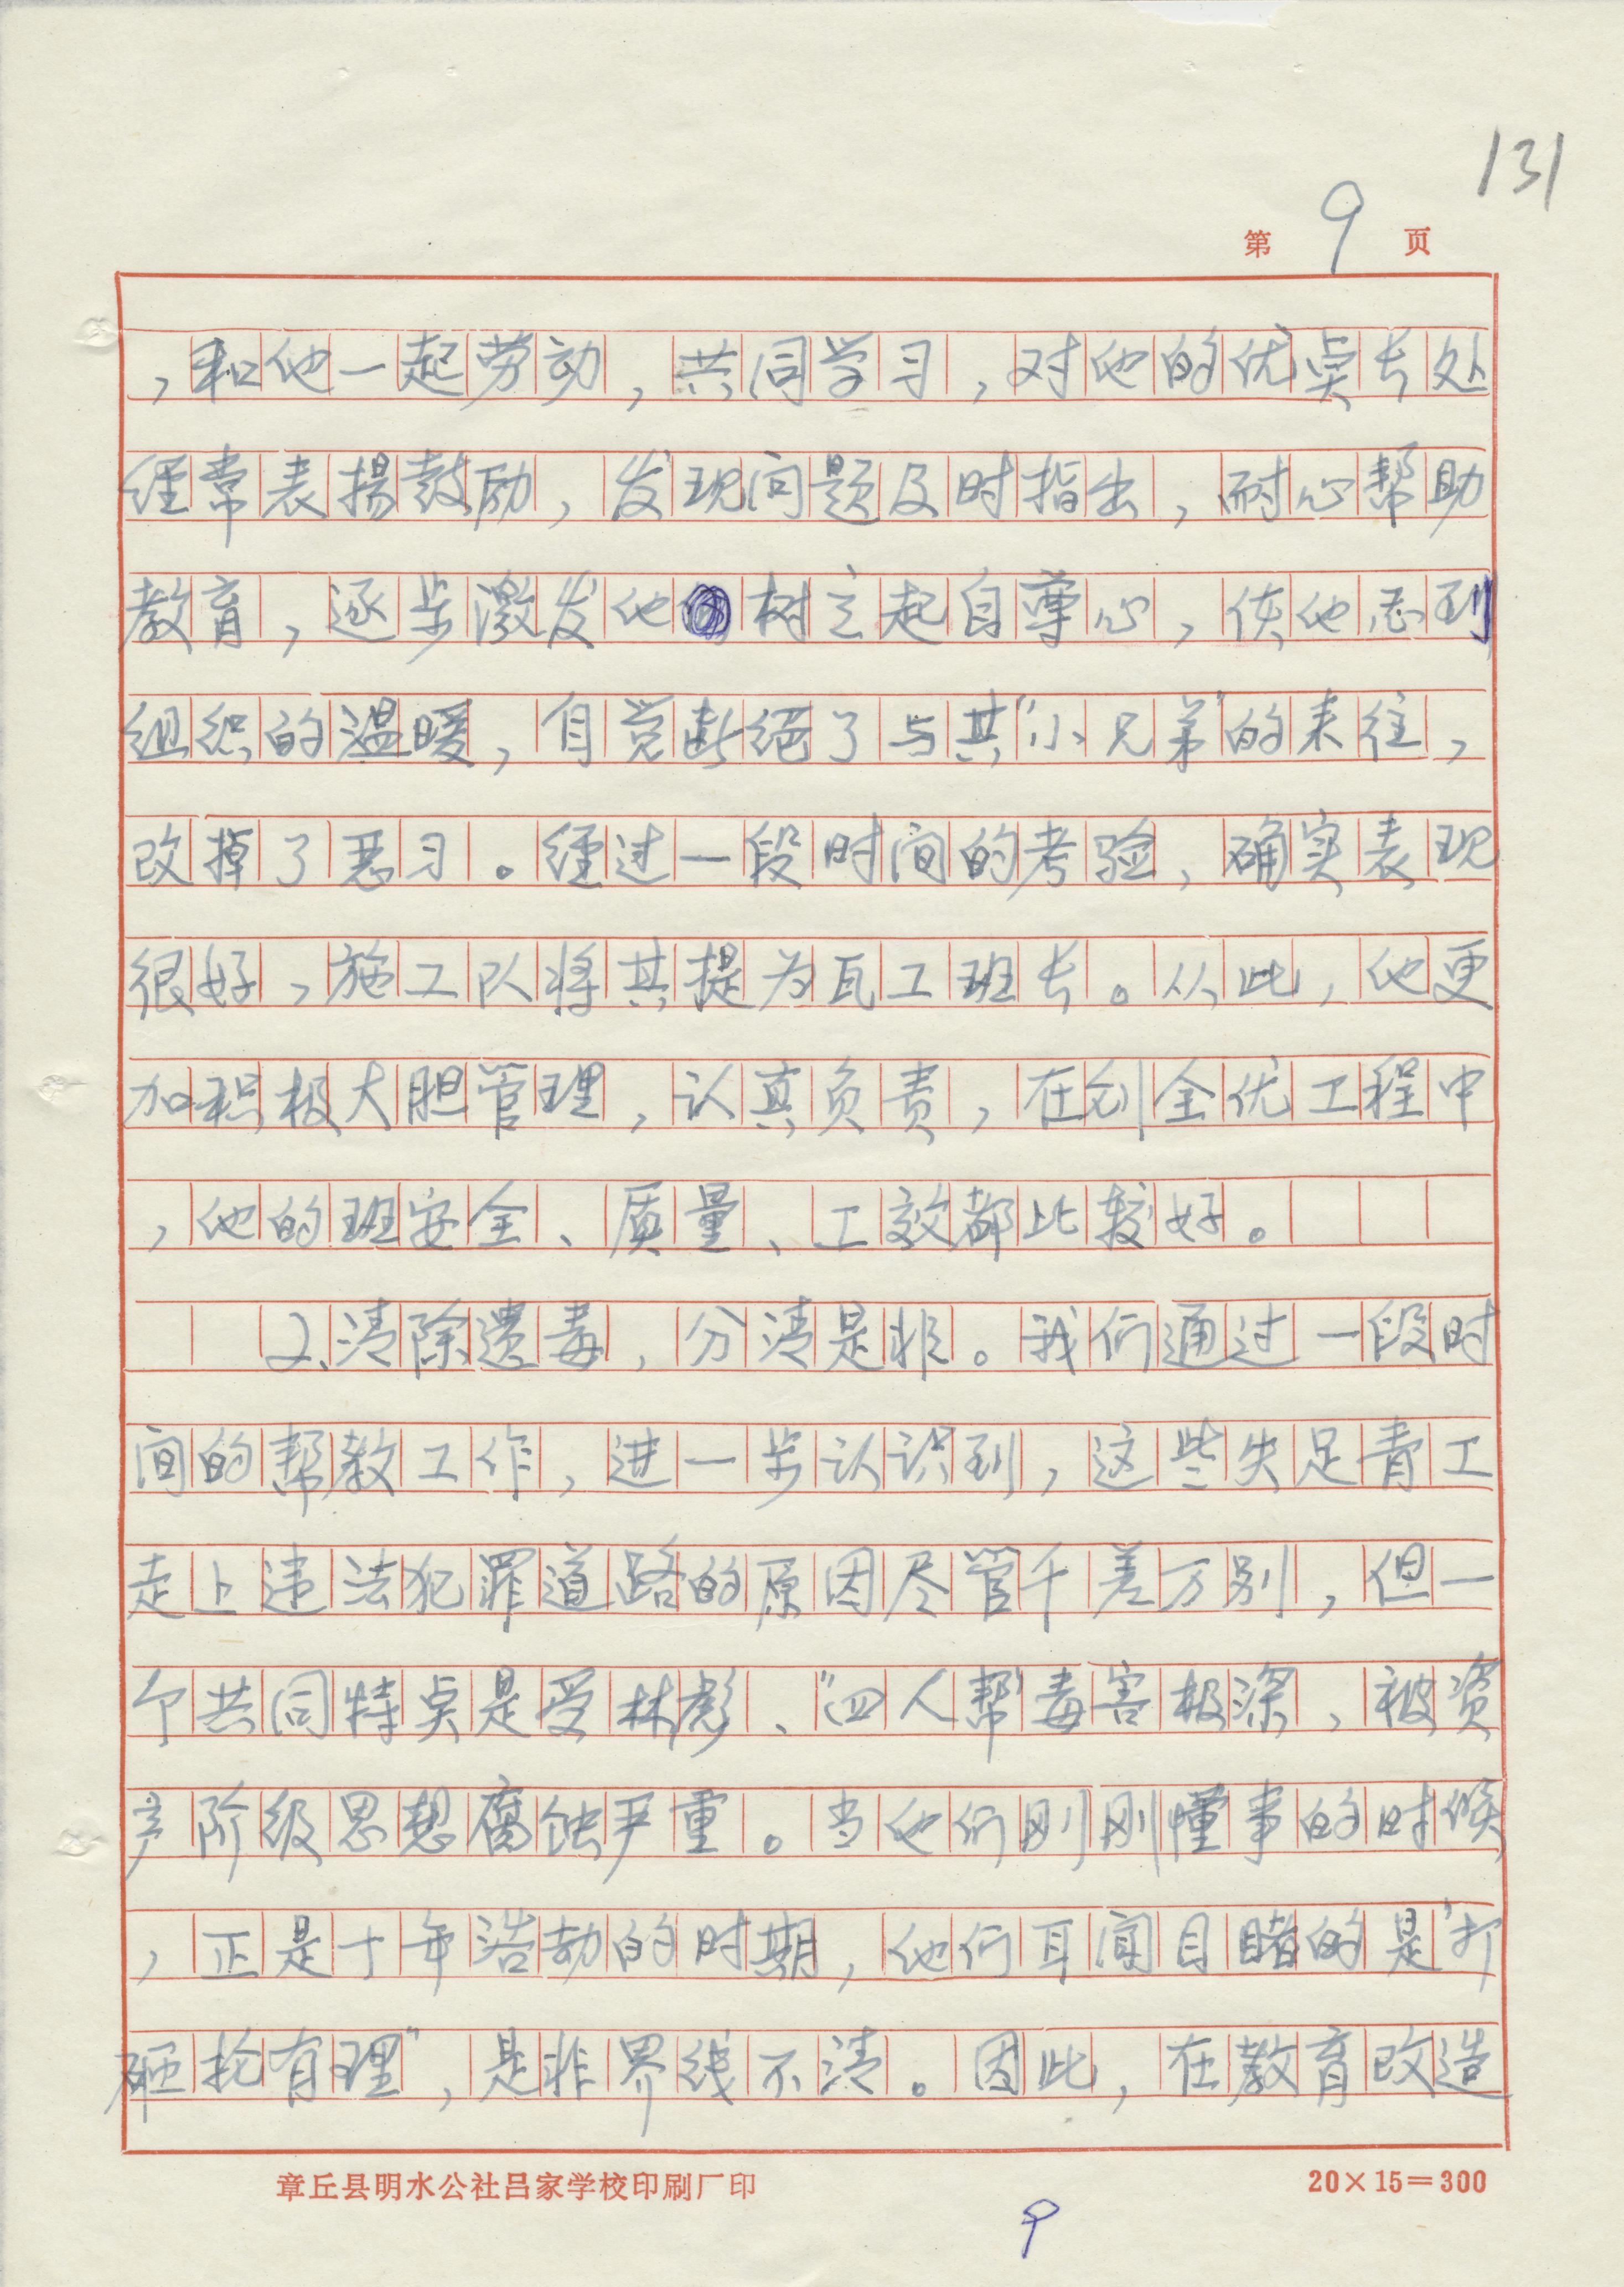 131
第9页
，和他一起劳动，共同学习，对他的优点长处
经常表揚鼓励，发现问题及时指出，耐心帮助
教育，逐步激发他树立起自尊心，使他感到
组织的温暖，自觉断绝了与其“小兄弟”的来往，
改掉了恶习。经过一段时间的考验，确实表现
很好，施工队将其提为瓦工班长。从此，他更
加积极大胆管理，认真负责，在创全优工程中
，他的班安全、质量、工效都比较好。
2、清除遗毒，分清是非。我们通过一段时
间的帮教工作，进一步认识到，这些失足青工
走上违法犯罪道路的原因尽管千差万别，但一
个共同特点是受林彪、“四人帮”毒害极深，被资
产阶级思想腐蚀严重。当他们刚刚懂事的时候
，正是十年浩劫的时期，他们耳闻目睹的是“打
砸抢有理”，是非界线不清。因此，在教育改造
章丘县明水公社吕家学校印刷厂印
20×15=300
9